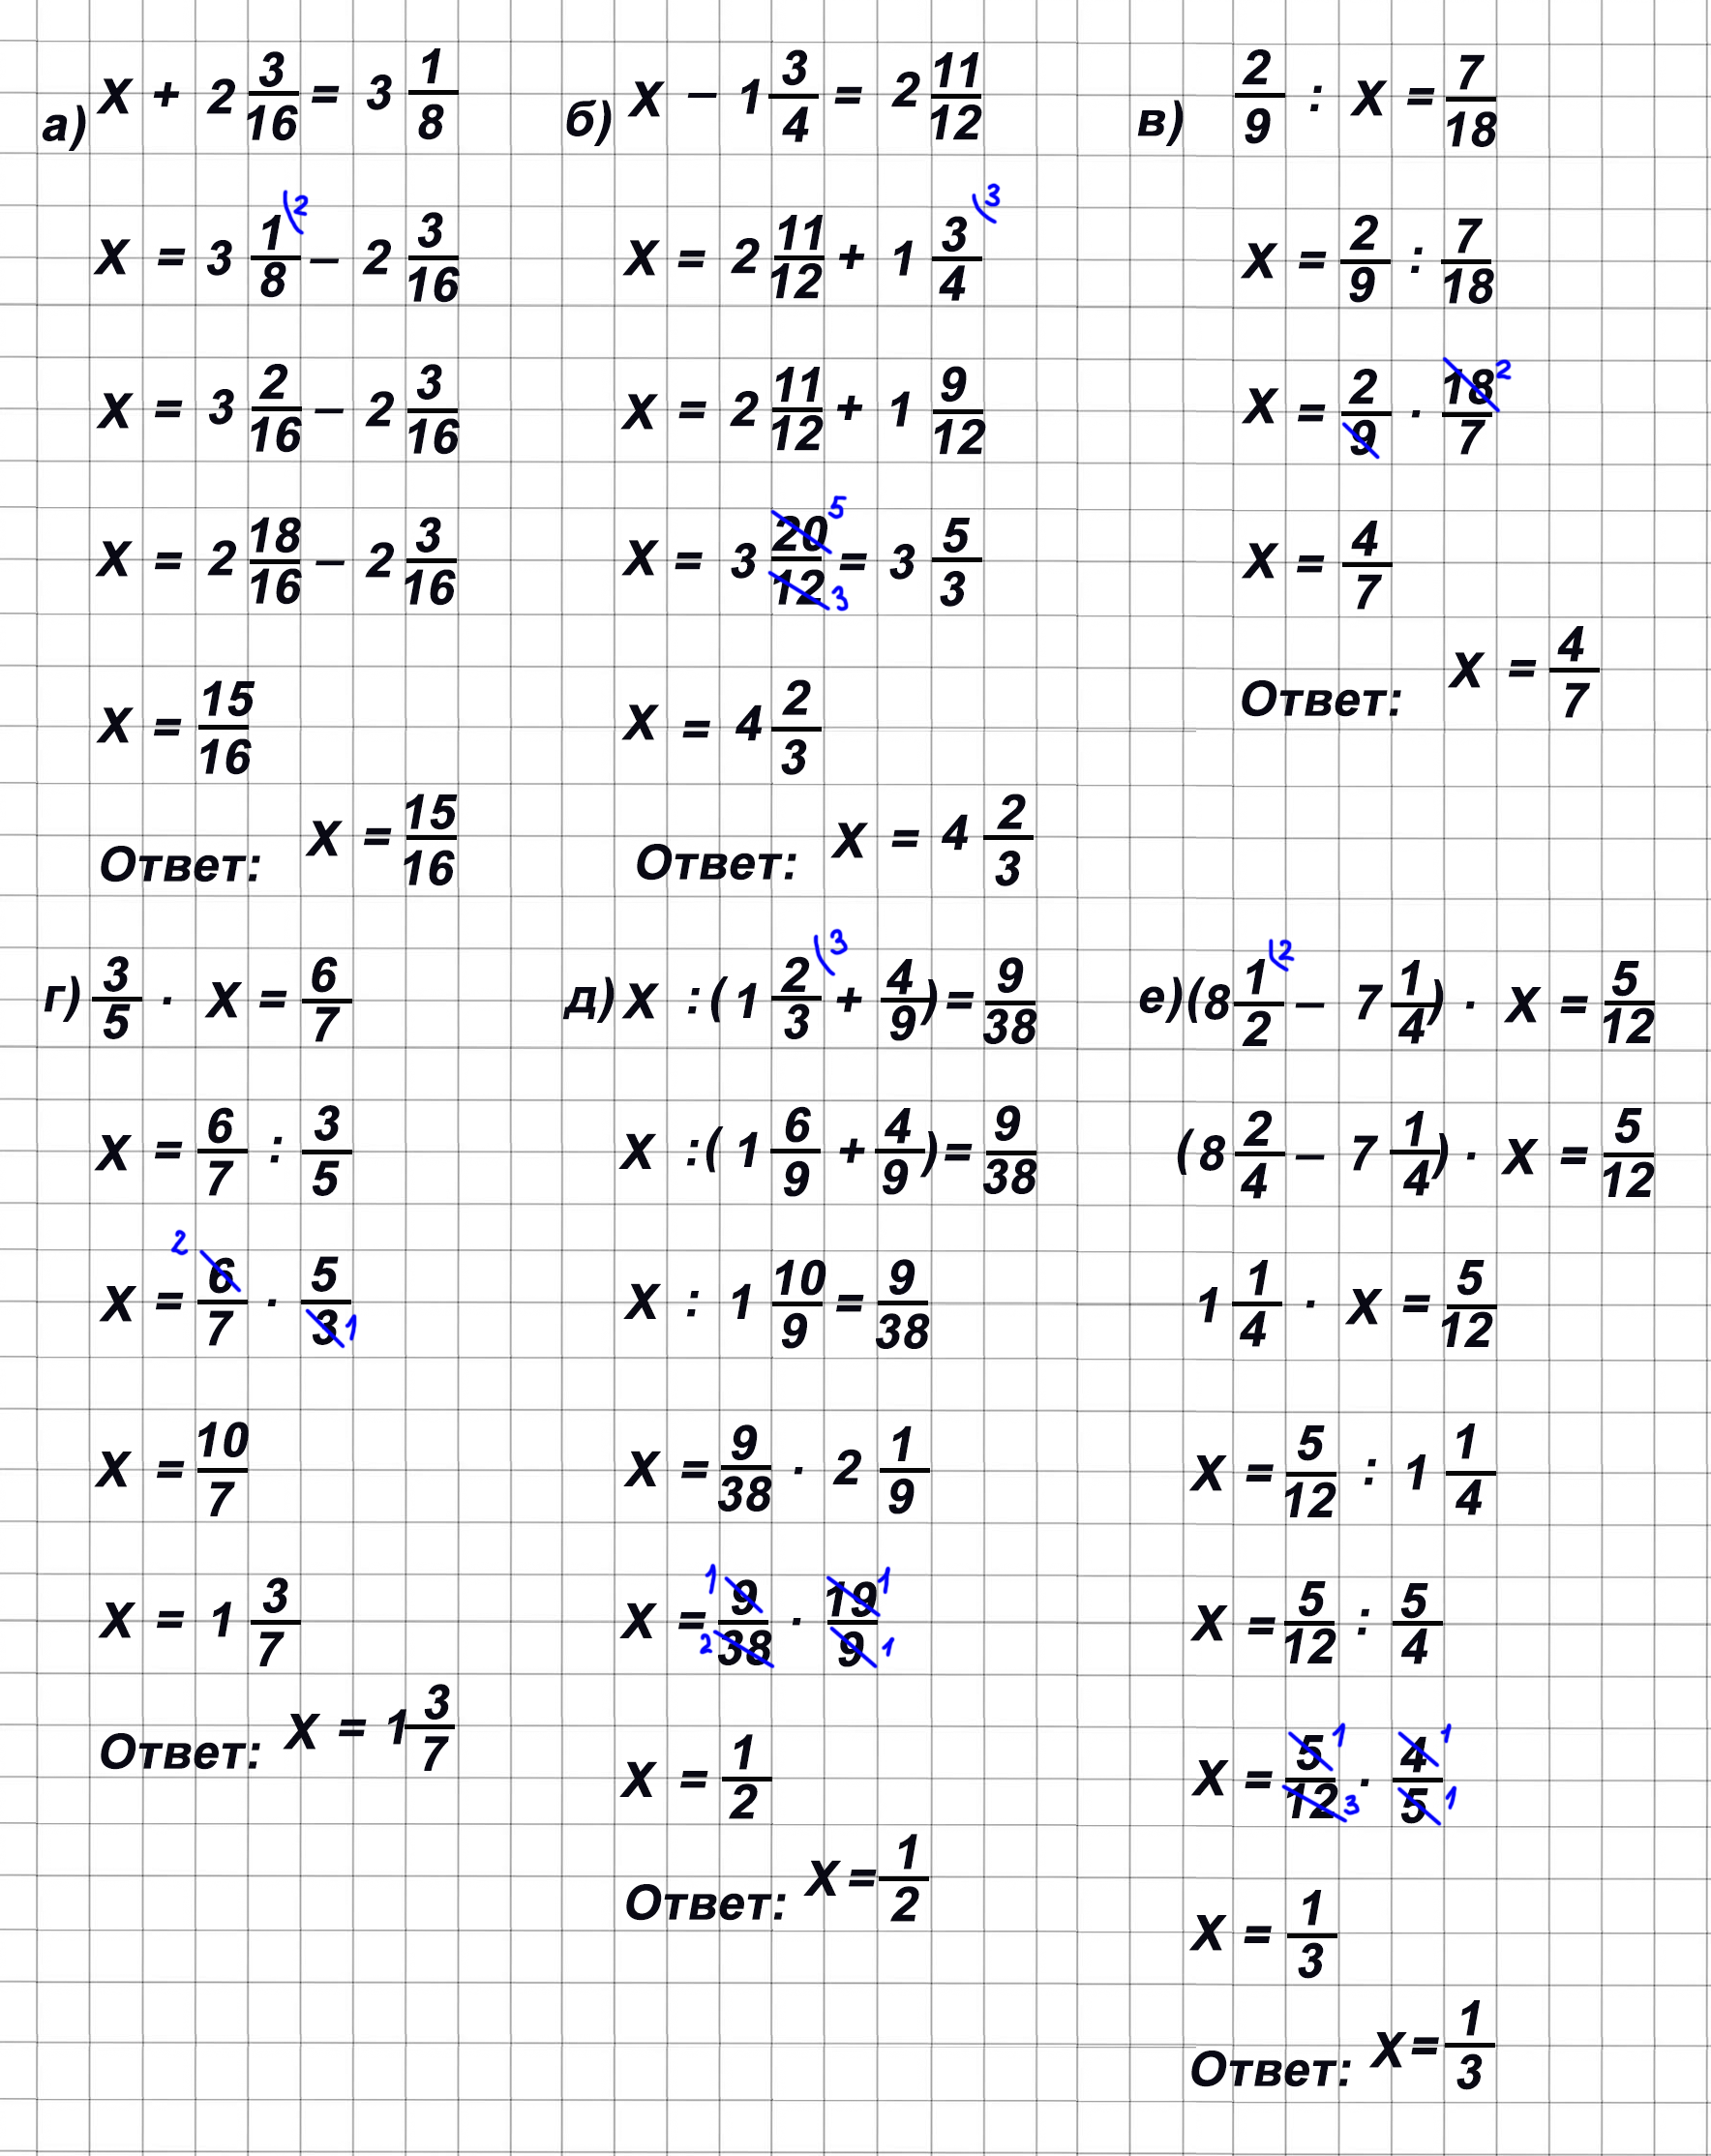 а) x + 2 3/16 = 3 1/8
x = 3 1/8 (2 – 2 3/16
x = 3 2/16 – 2 3/16
x = 2 18/16 – 2 3/16
x = 15/16
Ответ: x = 15/16
б) x – 1 3/4 = 2 11/12
x = 2 11/12 + 1 3/4 (3
x = 2 11/12 + 1 9/12
x = 3 20/12 5 3 = 3 5/3
x = 4 2/3
Ответ: x = 4 2/3
в) 2/9 : x = 7/18
x = 2/9 : 7/18
x = 2/9 · 18/7 2
x = 4/7
Ответ: x = 4/7
г) 3/5 · x = 6/7
x = 6/7 : 3/5
x = 2 6/7 · 5/3 1
x = 10/7
x = 1 3/7
Ответ: x = 1 3/7
д) x : (1 2/3 (3 + 4/9) = 9/38
x : (1 6/9 + 4/9) = 9/38
x : 1 10/9 = 9/38
x = 9/38 · 2 1/9
x = 1 2 9/38 · 19/9 1 1
x = 1/2
Ответ: x = 1/2
е) (8 1/2 (2 – 7 1/4) · x = 5/12
(8 2/4 – 7 1/4) · x = 5/12
1 1/4 · x = 5/12
x = 5/12 : 1 1/4
x = 5/12 : 5/4
x = 5/12 1 3 · 4/5 1 1
x = 1/3
Ответ: x = 1/3